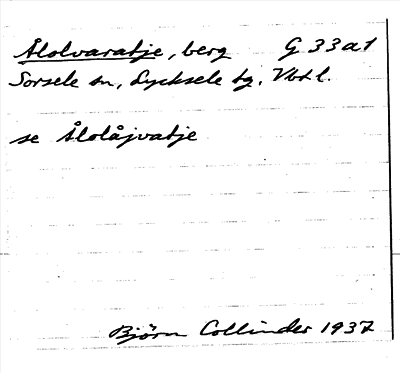 Ålolvaratje, berg G 33 a 1
Sorsele sn, Lycksele tg, Vbtl.
se Ålolåjvatje
Björn Collinder 1937